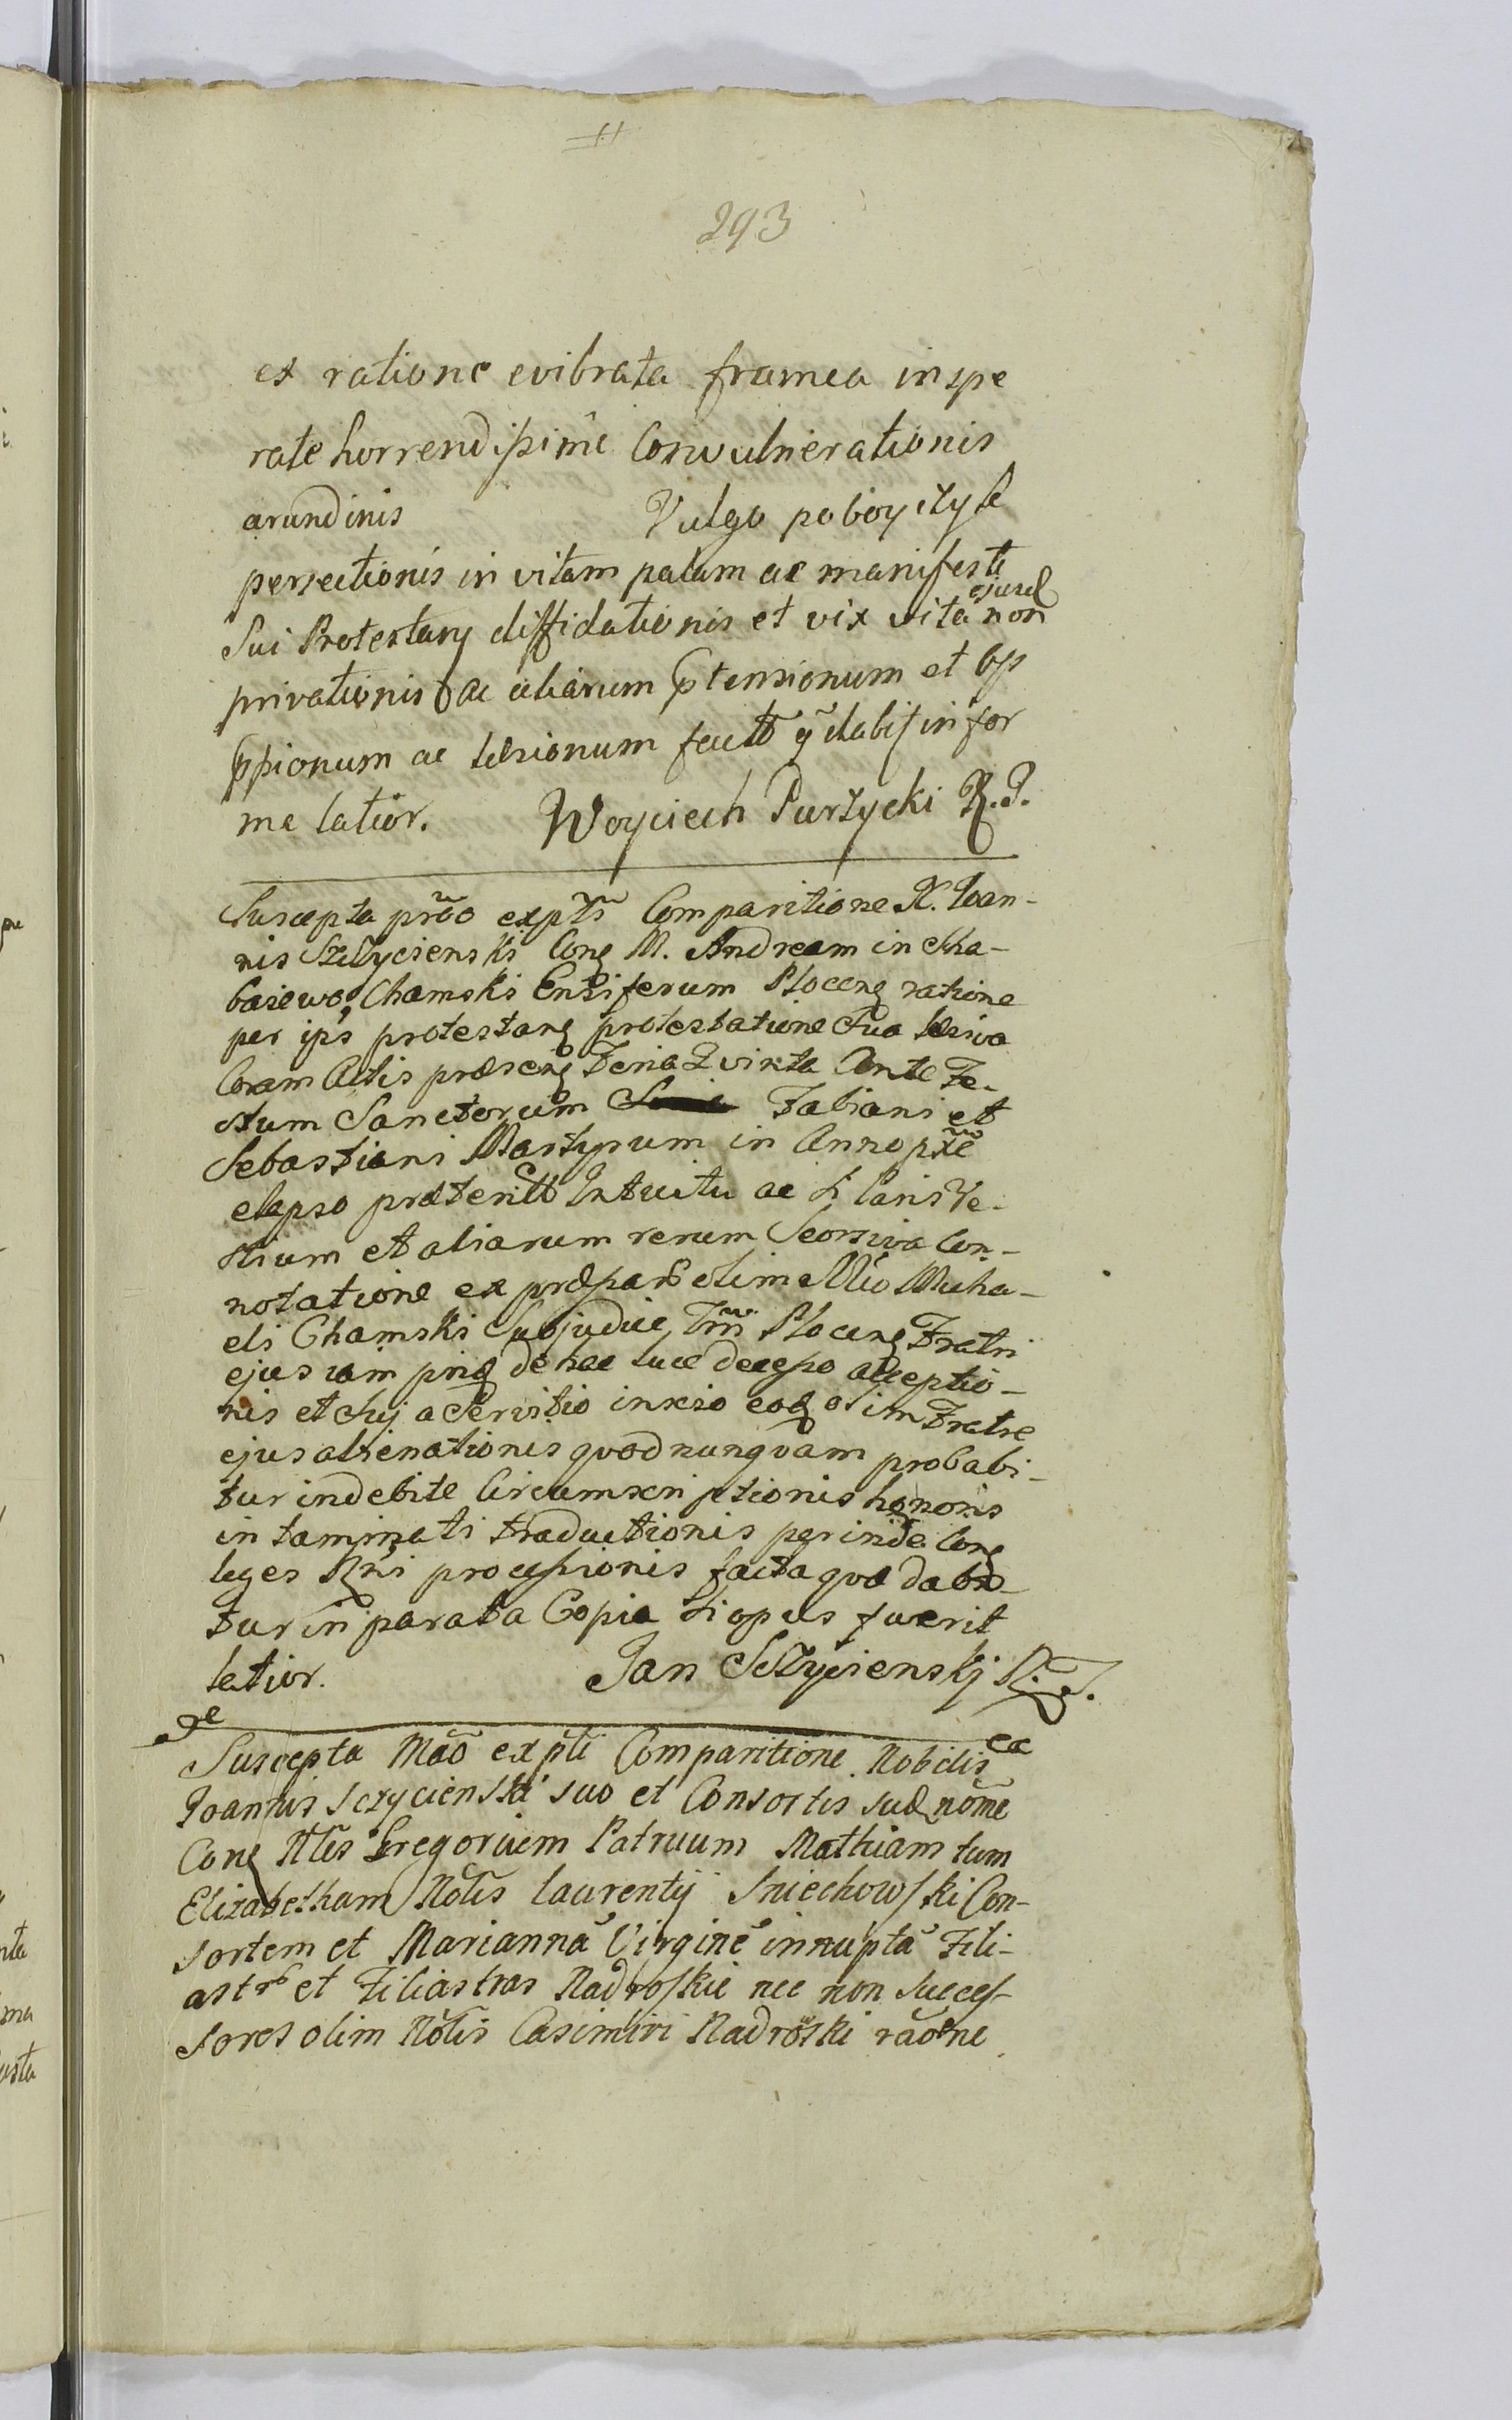 293
ex ratione evibrata framea inspe
rate horrendissime Convulnerationis
arundinis Vulgo poboyczyk
persectionis in vitam palam ac manifeste
Sui Protestanӡ diffidationis et vix vita ejusd non
privationis ac aliarum ptensionum et op
ppsionum ac laesionum fact q dabit in for
ma latior. Woyciech Purzycki R. P.
Suscepta pro expts Comparitione N. Joan-
nis Szczycienski Conӡ M. Andream in Cha-
Chamski Ensiferum Plocenӡ ratione
per ips protestanӡ protestatione sua laesiva
Coram Actis praesenӡ Feria Qvinta Ante Fe-
stum Sanctorum Fabiani et
Sebastiani Martyrum in Anno pxe
elapso praeterit Intuitu ac
stium et aliarum rerum Seorsiva Con-
notatione ex olim Mco Micha-
eli Chamski Subjudice Tris Plocenӡ Fratri
ejus iam priӡ de hac luce decesso acceptio-
nis et a Servitio inscio eoӡ olim Fratre
ejus alienationis qvod nunqvam probabi-
tur indebite Circumscriptionis honoris
intaminati traductionis perinde Conӡ
leges Rni processionis facta qvae dabi-
tur in parata Copia Si opus fuerit
latior. Jan Szczycienskj R. P.
Suscepta Mao expti Comparitione Nobilis
Joannis Sczycienski suo et Consortis suae nome
Conӡ Nles Gregorium Patruum Mathiam tum
Elizabetham Nolis Laurentij Sniechowski Con-
sortem et Marianna Virgine innupta Fili-
astr et Filiastras Nadroskie nec non Succes-
sores olim Nolis Casimiri Nadroski raone